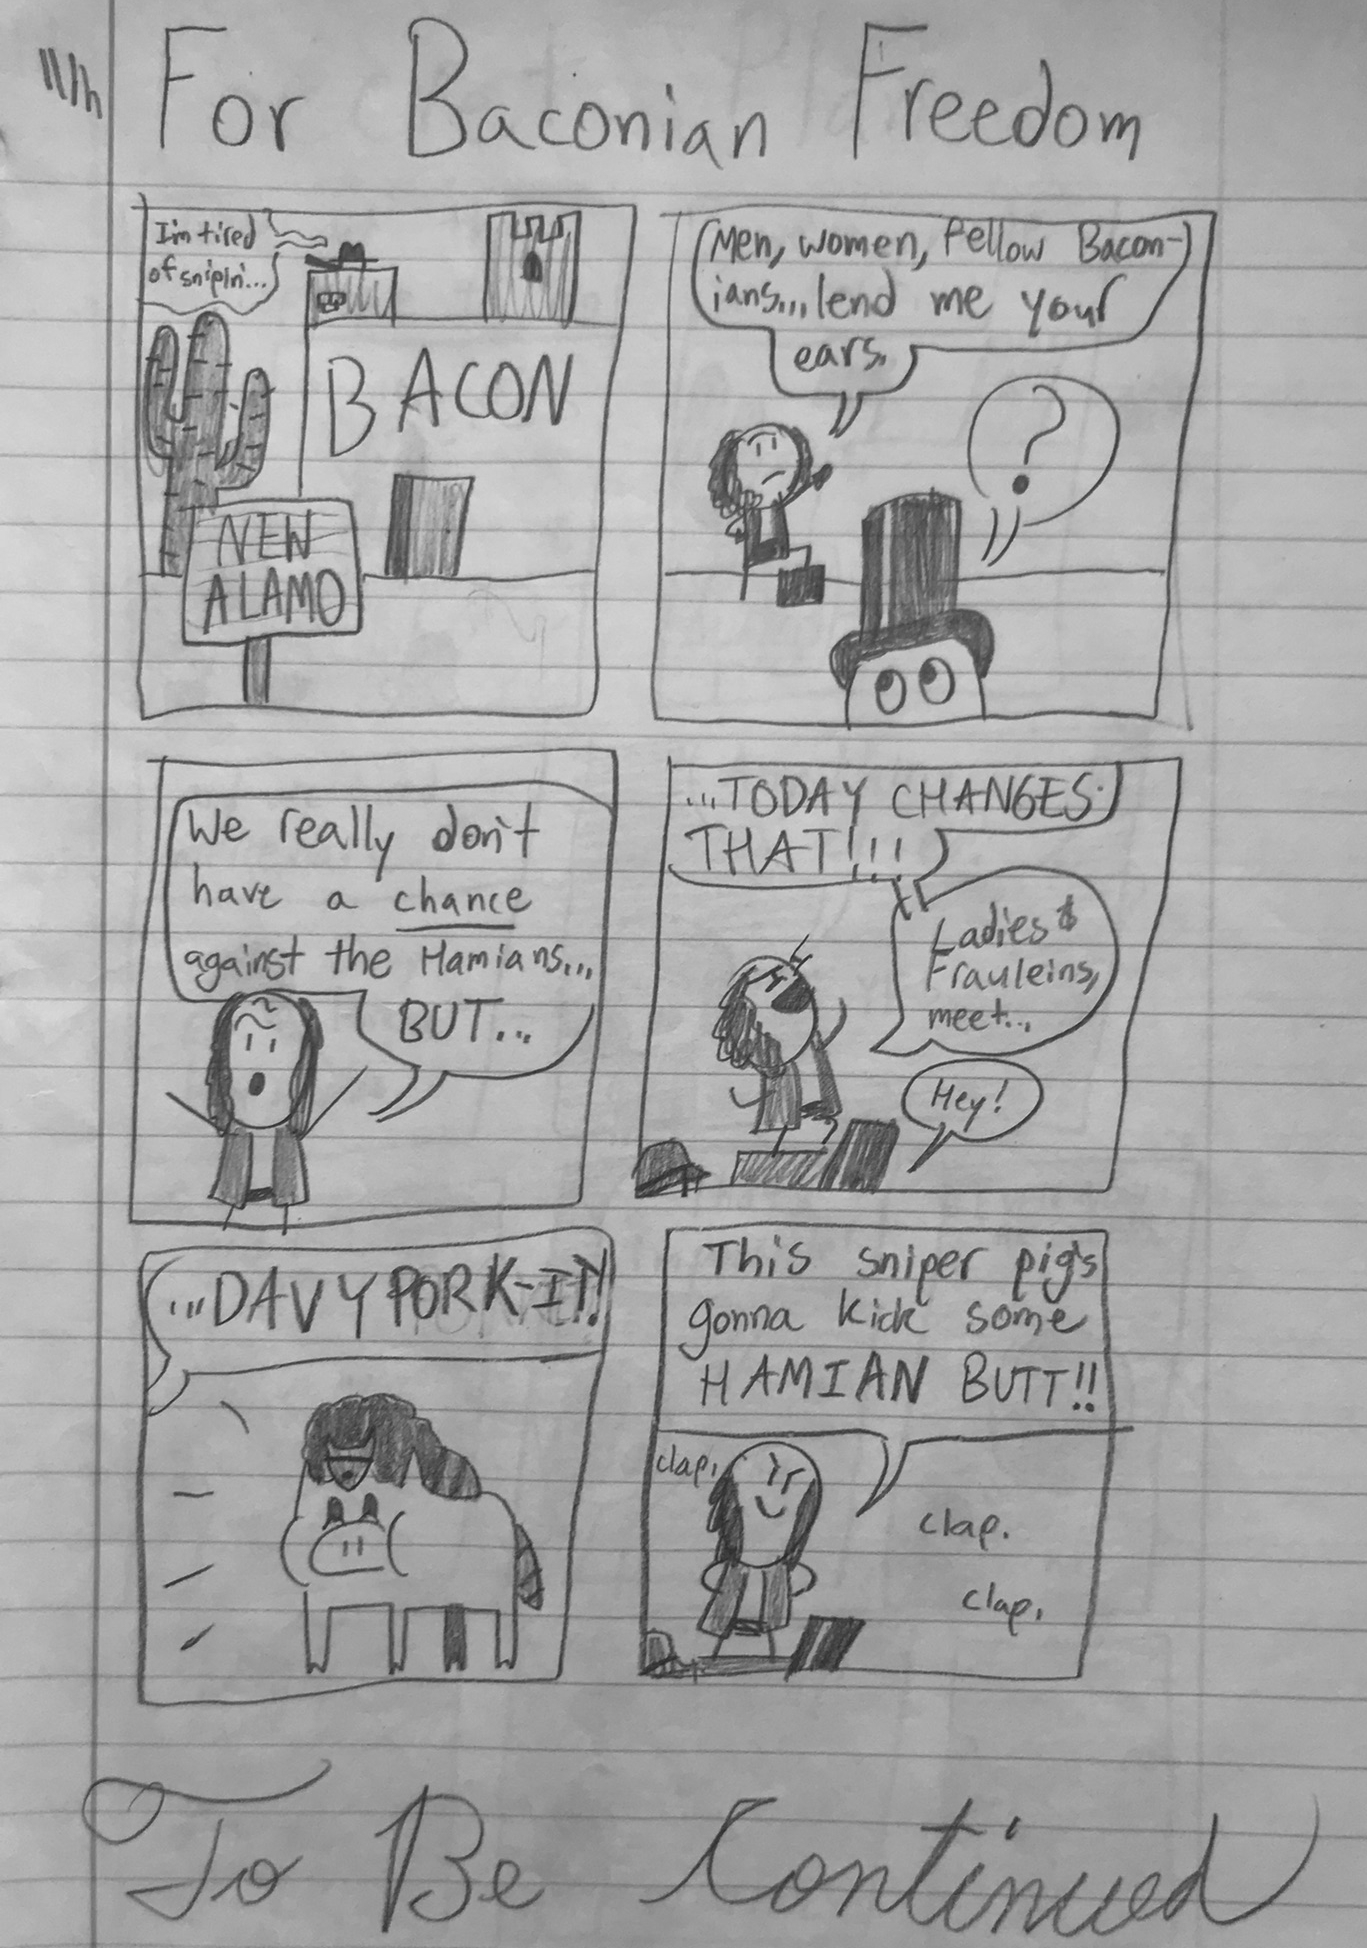 For Baconian Freedom
I'm tired
of snipin'...
BACON
NEW
ALAMO
Men, women, fellow Bacon-
ians... lend me your
ears.
?
We really don't
have a chance
against the Hamians...
BUT...
...TODAY CHANGES
THAT!!!
Ladies &
Frauleins,
meet...
Hey!
...DAVY PORK-IT!
This sniper pig's
gonna kick some
HAMIAN BUTT!!
clap.
clap.
clap.
To Be Continued